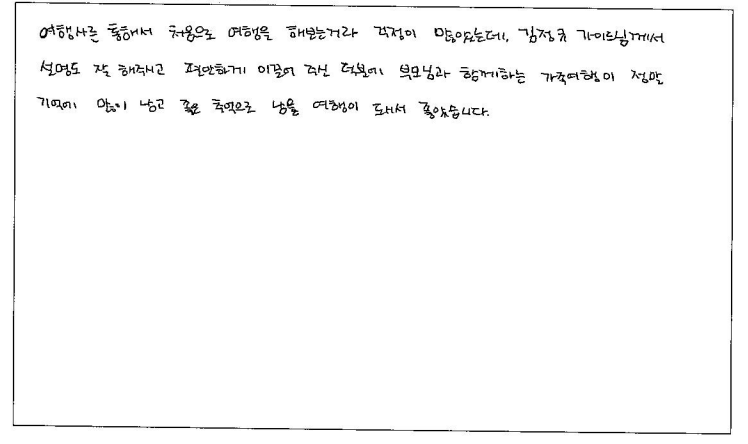 여행사를 통해서 처음으로 여행을 해보는거라 걱정이 많았는데, 김정규 가이드님께서
설명도 잘 해주시고 편안하게 이끌어 주신 덕분에 부모님과 함께하는 가족여행이 정말
기억에 많이 남고 좋은 추억으로 남을 여행이 되어서 좋았습니다.